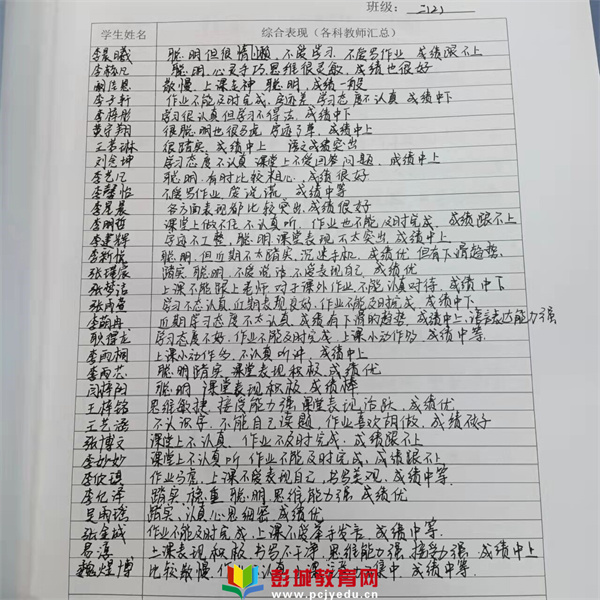 班级:
学生姓名 综合表现（各科教师汇总）
李晨曦 聪明但很懒，不爱学习，不爱写作业，成绩跟不上
聪明，心灵手巧思维很灵敏，成绩也很好
散慢，上课走神 聪明，成绩一般
李子轩 作业不能及时完成，学习态度不认真 成绩中下
学习很认真但学习不得法，成绩中下
黄宇翔 很聪明也很马虎，成绩中上
很踏实，成绩中上 语文成绩突出
学习态度不认真 课堂上不爱回答问题、成绩中上
李艺凡 聪明，有时比较粗心，成绩很好
李馨怡 不爱写作业，爱说谎，成绩中等
李晨 各方面表现都比较突出，成绩很好
李明哲 课堂上做不住不认真听，作业也不能及时完成，成绩跟不上
李建辉 聪明课堂表现不太突出，成绩中上
李新悦 聪明，但近期不太踏实，沉迷手机，成绩优 但有下滑趋势
张瑾宸 踏实，聪明，不爱说话不爱表现自己，成绩优
张梦洁 上课不能跟上老师，对于课外作业不能认真对待，成绩中下
张雨萱 学习不太认真，近期表现良好，作业不能及时完成，成绩中下
李萌冉 近期学习态度不太认真，成绩有下滑的趋势，成绩中上，语言表达能力强
学习态度不好，作业不能及时完成，上课小动作多 成绩中等
李雨桐 上课小动作多，不认真听讲，成绩中上
李雨芯 聪明踏实，课堂表现积极，成绩优
闫梓阳 聪明，课堂表现积极，成绩棒
王梓铭 思维敏捷，接受能力强，课堂表现活跃，成绩优
王艺涵 不认识字，不能自己读题，作业喜欢胡做，成绩
张博文 课堂上不认真，作业不及时完成，成绩跟不上
李妙妙 课堂上不认真听 作业不能及时完成，成绩跟不上
作业马虎，上课不爱表现自己，书写美观，成绩中等
李亿泽 踏实稳重 聪明，思维能力强，成绩优
吴雨瑶 踏实、认真心思细密 成绩优
张金城 作业不能及时完成，上课不爱举手发言，成绩中等
上课表现积极 书写不干净，思维能力强，接受力强，成绩中上
魏煜博 比较散慢，集中，成绩中等
彭城教育网
www.pcjyedu.cn